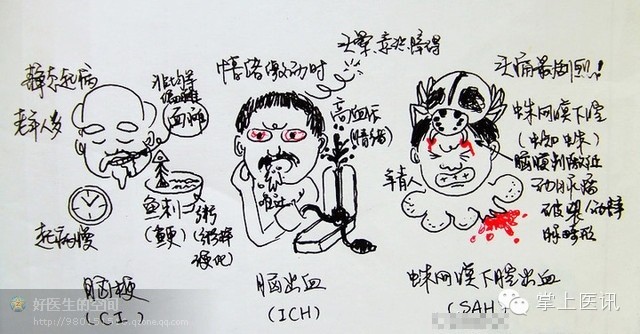 静态起病
老年人多
起病慢
血滩
鱼刺
(鲠)
粥
脑梗
(CI)
情绪激动时
头晕、意识障碍
高血压
(情绪)
呕吐
脑出血
(ICH)
头痛最剧烈!
蛛网膜下腔
(蜘蛛)
脑膜刺激征
动脉瘤
破裂
脉畸形
年青人
蛛网膜下腔出血
(SAH)
好医生的空间
掌上医讯